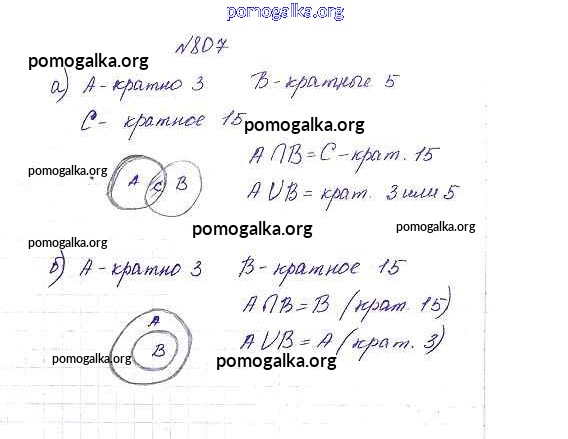 pomogalka.org
№807
pomogalka.org
а) А-кратно 3 В-кратные 5
С- кратное 15
pomogalka.org
А∩В=С-крат. 15
pomogalka.org
А С В
А∪В= крат. 3 или 5
pomogalka.org
pomogalka.org
pomogalka.org
б) А-кратно 3 В-кратное 15
А∩В=В (крат. 15)
А
В
А∪В=А (крат. 3)
pomogalka.org
pomogalka.org